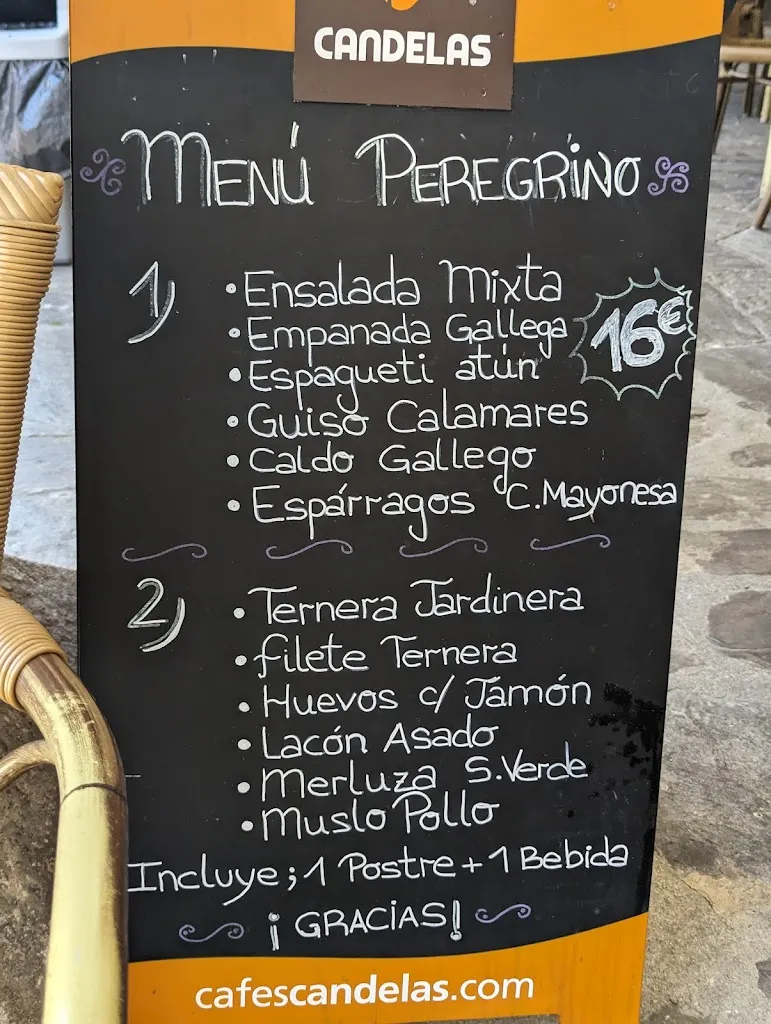 CANDELAS
MENÚ PEREGRINO
1)
• Ensalada Mixta
• Empanada Gallega
16€
• Espagueti atún
• Guiso Calamares
• Caldo Gallego
• Espárragos C. Mayonesa
2)
• Ternera Jardinera
• filete Ternera
• Huevos c/ Jamón
• Lacón Asado
• Merluza S. Verde
• Muslo Pollo
Incluye; 1 Postre + 1 Bebida
¡GRACIAS!
cafescandelas.com